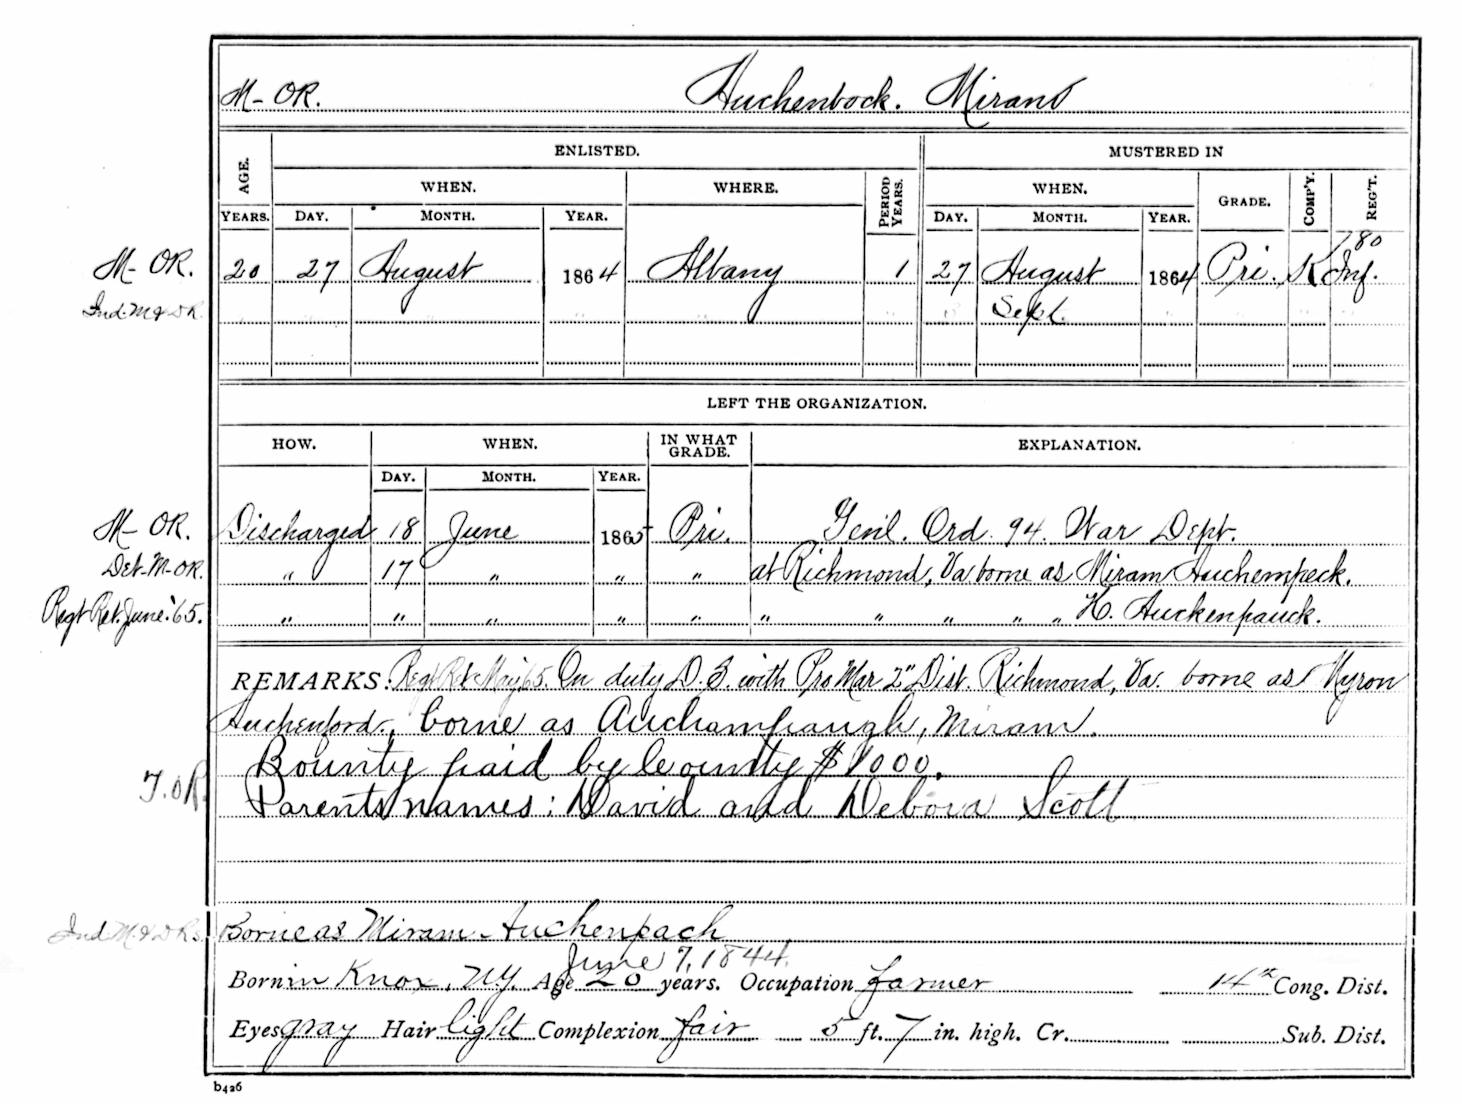 M-OR. Auchenbock. Miram
AGE. ENLISTED. MUSTERED IN
WHEN. WHERE. PERIOD YEARS. WHEN. GRADE. COMP'Y. REG'T.
YEARS. DAY. MONTH. YEAR. DAY. MONTH. YEAR.
M-OR. 20 27 August 1864 Albany 1 27 August 1864 Pri. K 7 80 Inf.
Ind. M & D R. " " " " " " Sept. " " " "
LEFT THE ORGANIZATION.
HOW. WHEN. IN WHAT GRADE. EXPLANATION.
DAY. MONTH. YEAR.
M-OR. Discharged 18 June 1865 Pri. Genl. Ord. 94. War Dept.
Det-M-OR. " 17 " " " at Richmond, Va borne as Miram Auchempeck.
Regt Ret. June '65. " " " " " " " " " " H. Auckenpauck.
REMARKS: Regt Ret May 65. On duty D.S. with Pro Mar 2" Dist. Richmond, Va. borne as Myron
Auchenford., borne as Auchampaugh, Miram.
Bounty paid by County $1000.
T.OR. Parents names: David and Debora Scott
Ind. M & D Rs. Borne as Miram Auchenpach
June 7, 1844.
Born in Knox, N.Y. Age 20 years. Occupation farmer 14th Cong. Dist.
Eyes gray Hair light Complexion fair 5 ft. 7 in. high. Cr. Sub. Dist.
b426